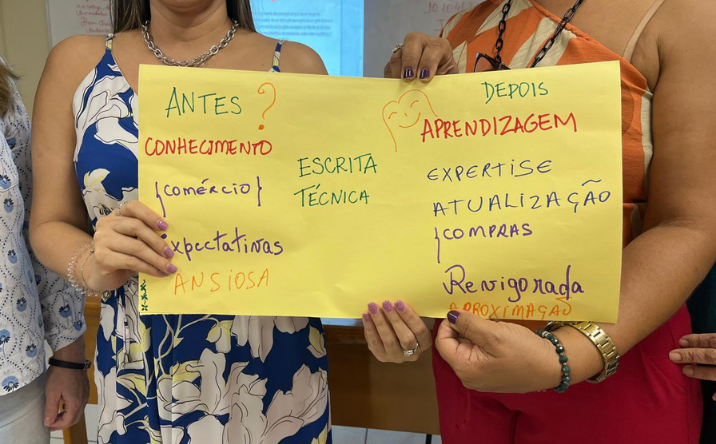 ANTES ?
CONHECIMENTO
{COMÉRCIO}
Expectativas
ANSIOSA
ESCRITA
TÉCNICA
DEPOIS
APRENDIZAGEM
EXPERTISE
ATUALIZAÇÃO
}COMPRAS
Revigorada
APROXIMAÇÃO